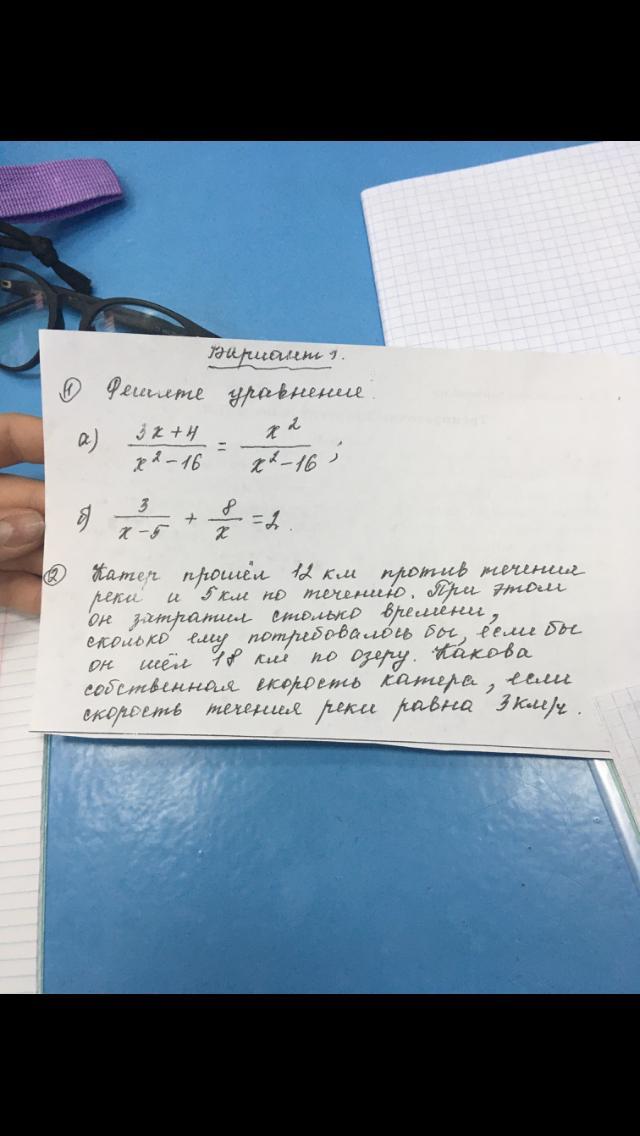 Вариант 1.
① Решите уравнение:
а) (3x+4)/(x²-16) = x²/(x²-16);
б) 3/(x-5) + 8/x = 2.
② Катер прошёл 12 км против течения
реки и 5 км по течению. При этом
он затратил столько времени,
сколько ему потребовалось бы, если бы
он шёл 18 км по озеру. Какова
собственная скорость катера, если
скорость течения реки равна 3 км/ч.